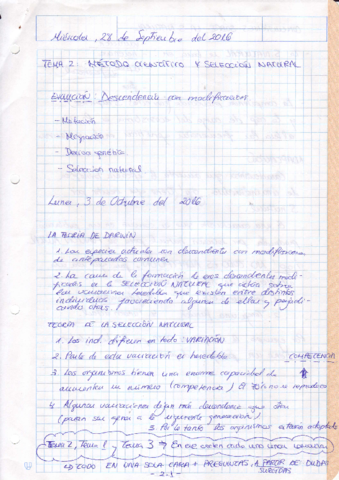 Miércoles, 28 de Septiembre del 2016
TEMA 2: MÉTODO CIENTÍFICO Y SELECCIÓN NATURAL
EVOLUCIÓN: Descendencia con modificación
- Mutación
- Migración
- Deriva genética
- Selección natural
Lunes, 3 de Octubre del 2016
LA TEORÍA DE DARWIN
1. Las especies actuales son descendientes con modificaciones
de antepasados comunes
2. La causa de la formación de esos descendientes modi-
ficados es la SELECCIÓN NATURAL que actúa sobre
las variaciones heredables que existen entre distintos
individuos favoreciendo algunas de ellas y perjudi-
cando otras.
TEORÍA DE LA SELECCIÓN NATURAL
1. Los ind. difieren en todo: VARIACIÓN
2. Parte de esta variación es heredable
COMPETENCIA
3. Los organismos tienen una enorme capacidad de
aumentar su número (competencia)
se reproducen
4. Algunas variaciones dejan más descendencia que otras
(pasan sus genes a la siguiente generación)
5. Por lo tanto los organismos
Tema 2, Tema 1 y Tema 3 → En ese orden
↳ TODO EN UNA SOLA CARA + PREGUNTAS, A PARTIR DE DUDAS
SURGIDAS
- 2.1 -